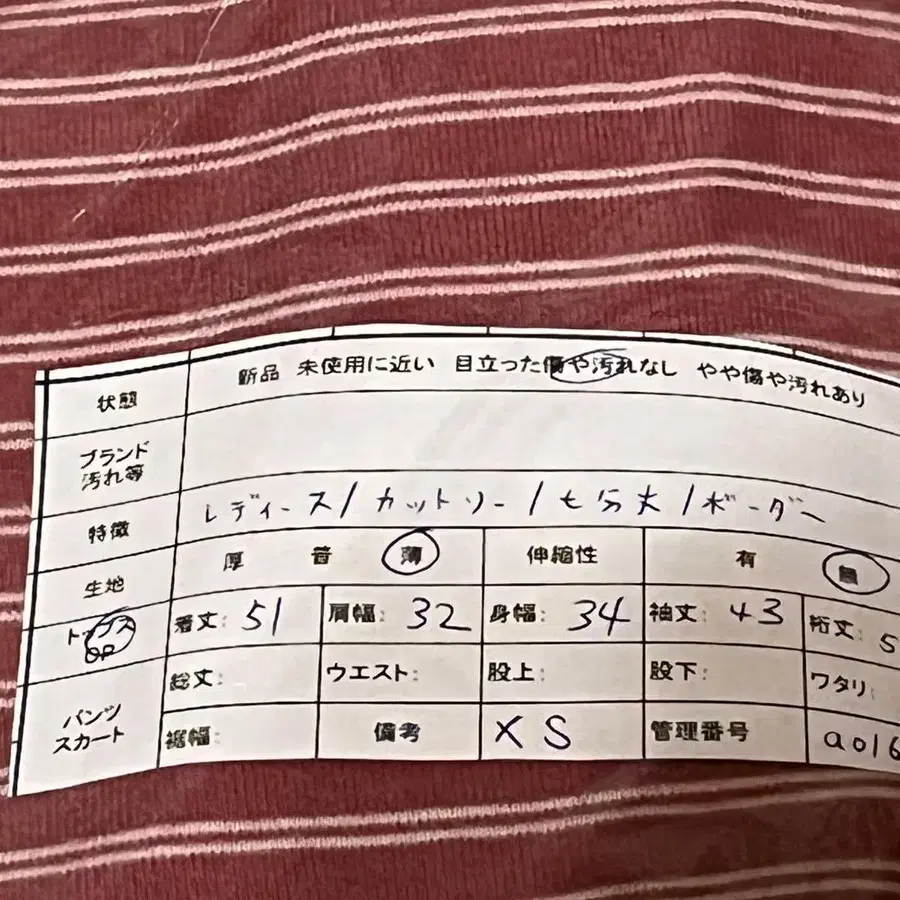 状態 新品 未使用に近い 目立った傷や汚れなし やや傷や汚れあり
ブランド
汚れ等
特徴 レディース/カットソー/七分丈/ボーダー
生地 厚 普 薄 伸縮性 有 無
トップス 着丈: 51 肩幅: 32 身幅: 34 袖丈: 43 裄丈: 5
OP
パンツ
スカート
総丈: ウエスト: 股上: 股下: ワタリ:
裾幅: 備考 XS 管理番号 a016